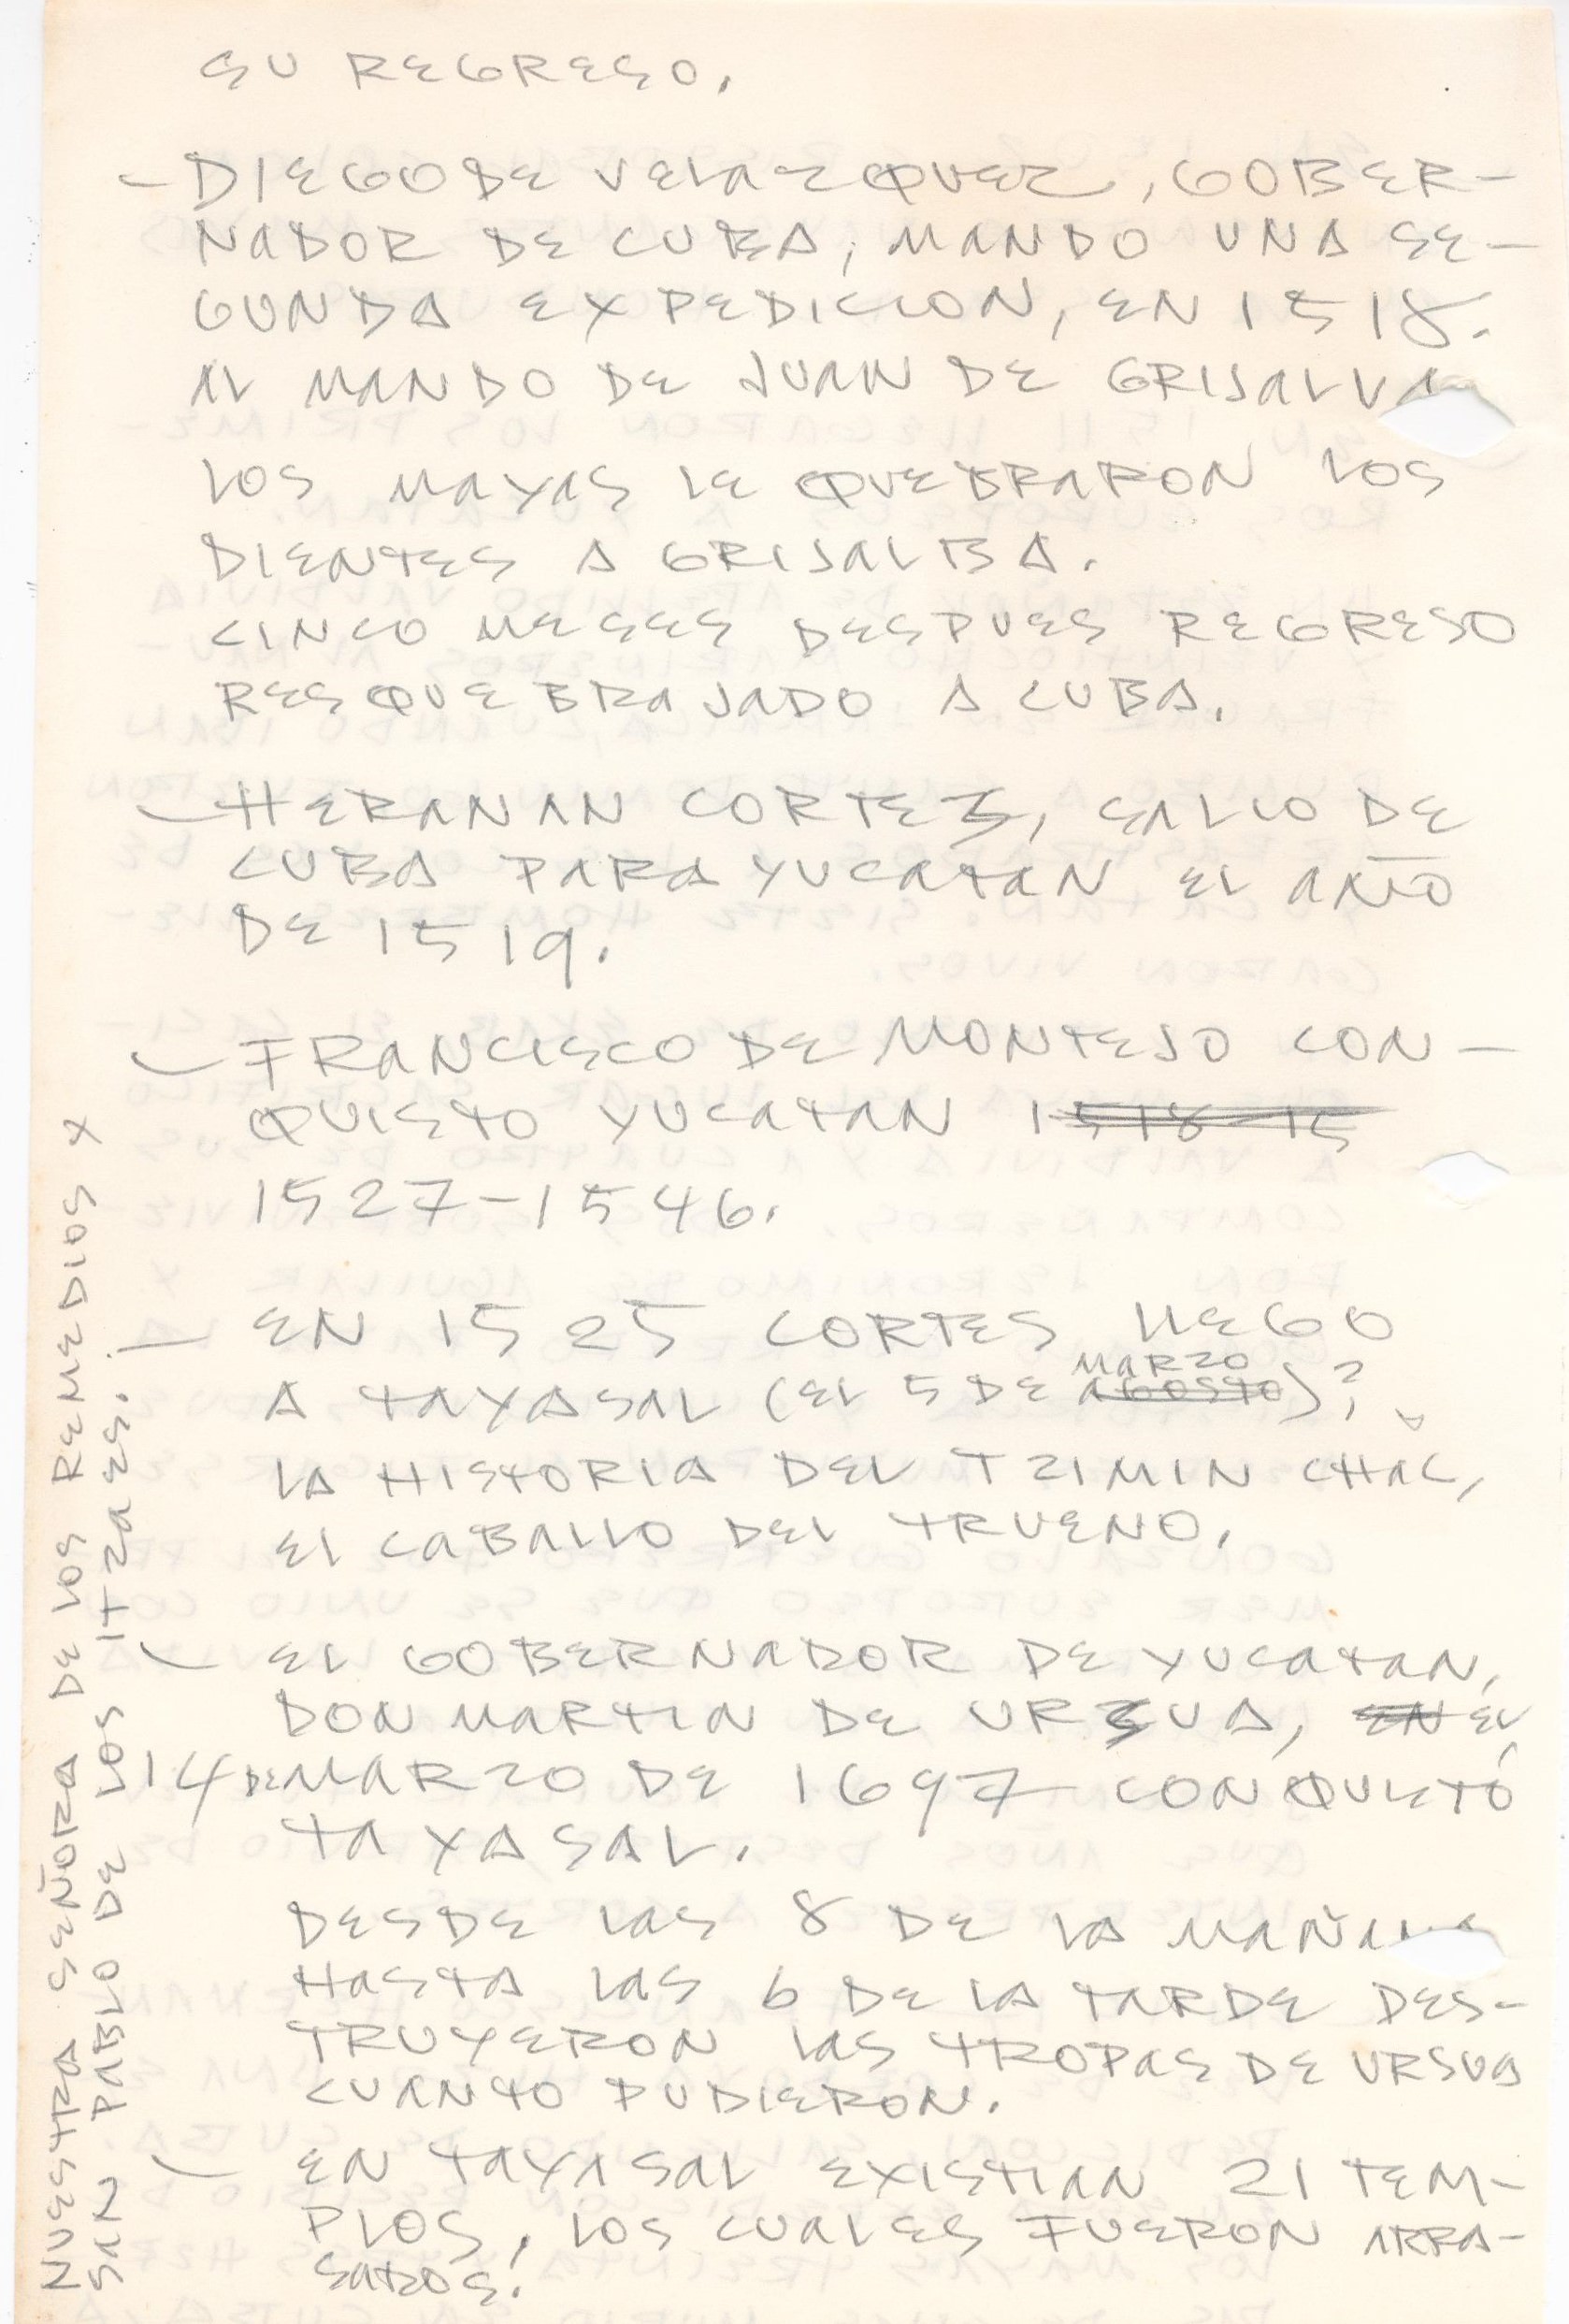 SU REGRESO.
- DIEGO DE VELAZQUEZ, GOBER-
NADOR DE CUBA, MANDO UNA SE-
GUNDA EXPEDICION, EN 1518.
AL MANDO DE JUAN DE GRIJALVA
LOS MAYAS LE QUEBRARON LOS
DIENTES A GRIJALBA.
CINCO MESES DESPUES REGRESO
RESQUEBRAJADO A CUBA.
- HERANAN CORTES, SALIO DE
CUBA PARA YUCATAN EL AÑO
DE 1519.
- FRANCISCO DE MONTEJO CON-
QUISTO YUCATAN 1518-15
1527-1546.
- EN 1525 CORTES LLEGO
MARZO
A TAYASAL (EL 5 DE AGOSTO)?
LA HISTORIA DEL TZIMIN CHAC,
EL CABALLO DEL TRUENO.
- EL GOBERNADOR DE YUCATAN,
DON MARTIN DE URSUA, EN EL
14 DE MARZO DE 1697 CONQUISTÓ
TAYASAL.
DESDE LAS 8 DE LA MAÑANA
HASTA LAS 6 DE LA TARDE DES-
TRUYERON LAS TROPAS DE URSUA
CUANTO PUDIERON.
- EN TAYASAL EXISTIAN 21 TEM-
PLOS, LOS CUALES FUERON ARRA-
SADOS!
NUESTRA SEÑORA DE LOS REMEDIOS Y
SAN PABLO DE LOS ITZAES.